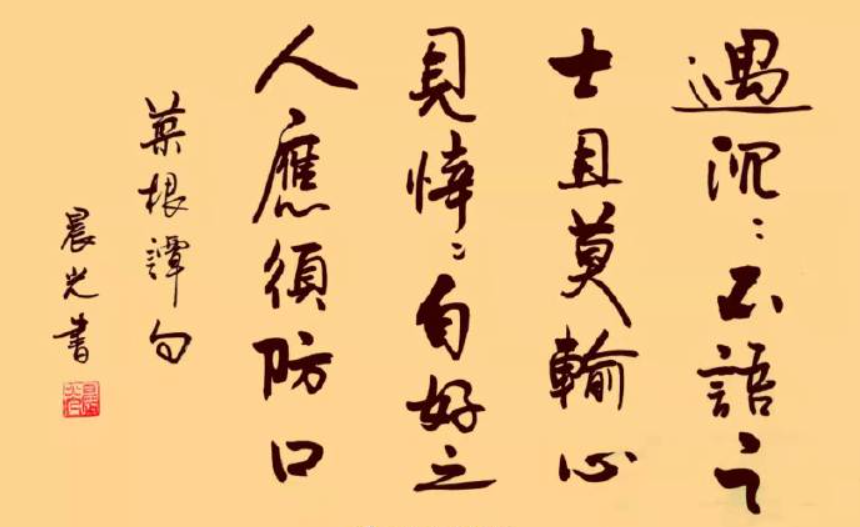 遇沉〻不語之
士且莫輸心
見悻〻自好之
人應須防口
菜根譚句
晨光書